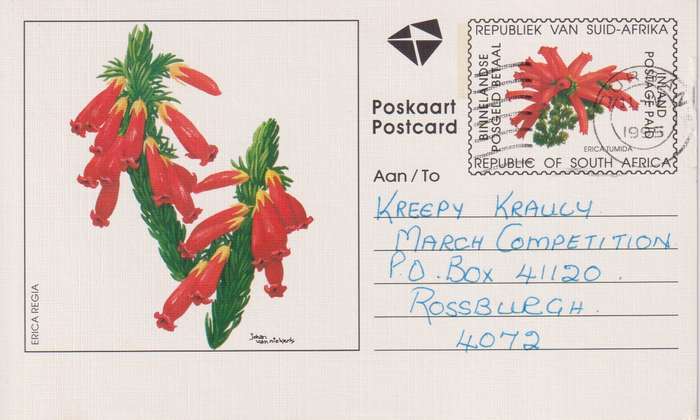 ERICA REGIA
Johan
van niekerk
Poskaart
Postcard
REPUBLIEK VAN SUID-AFRIKA
BINNELANDSE
POSGELD BETAAL
INLAND
POSTAGE PAID
1995
ERICA TUMIDA
REPUBLIC OF SOUTH AFRICA
Aan / To
KREEPY KRAULY
MARCH COMPETITION
P.O. BOX 41120.
ROSSBURGH.
4072